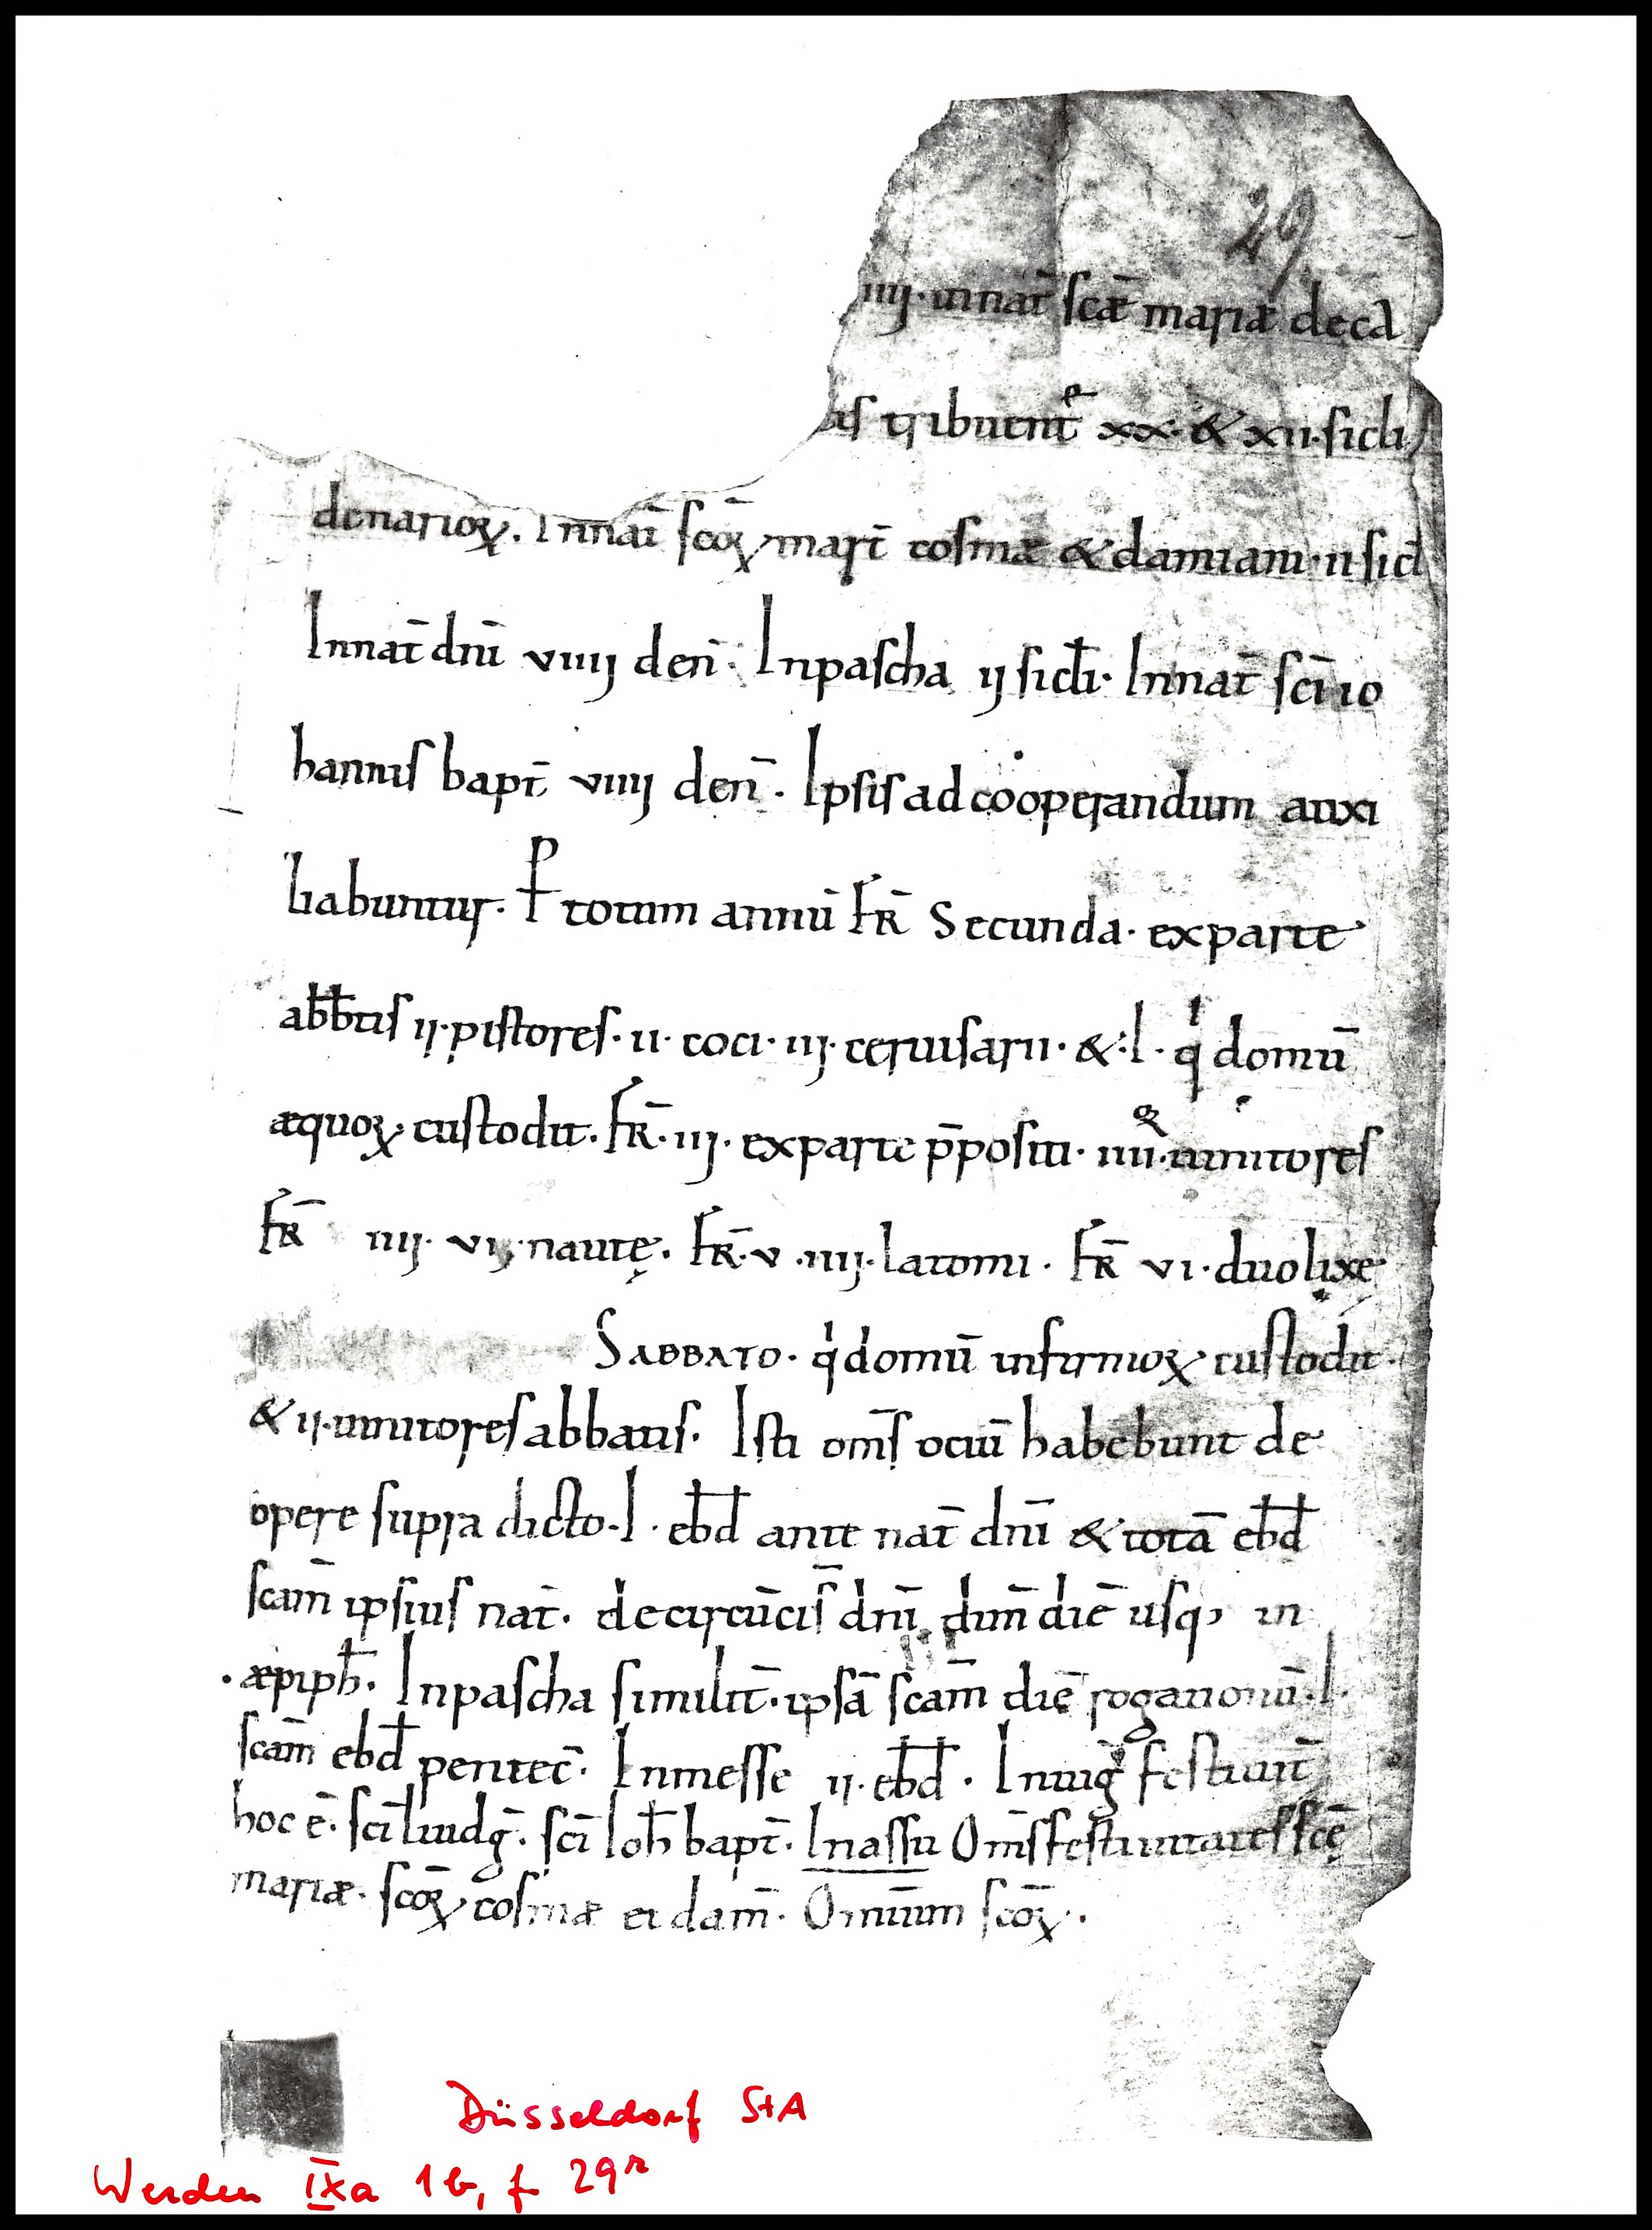 29
iiij· innat̄ sc̄æ mariæ decā
is tribuent᷑ xx· & xii· sicli
denarioꝝ. Innat̄ sc̄oꝝ mart̄ cosmæ & damiani· ii sicł
Innat̄ dn̄i viiij den̄· Inpascha ij sicłi· Innat̄ sc̄i io
hannis bapt̄ viiij den̄· Ipsis ad cooperandum auxi
liabuntur· P̵ totum annū FR̄ Secunda· exparte
abb̄tis ij· pistores· ii· coci· iij· ceruisarii· & ·l· qͥ domū
æquoꝝ custodit· FR̄· iij· exparte p̄positi· iiii· ministores
FR̄ iiij· vij nautę· FR̄· v· iiij· latomi· FR̄ vi· duo lixe
SABBATO· qͥ domū infirmoꝝ custodit·
& ij· ministores abbatis· Isti om̄s ociū habebunt de
opere supra dicto· l· ebđ ante nat̄ dn̄i & totā ebđ
scam̄ ipsius nat̄· decircūcis̄ dn̄i dim̄ diē usqꝫ in
·æpiph̄· Inpascha similit̄· ipsā scam̄ diē rogationū· l·
scam̄ ebđ pentec̄· Inmesse ij· ebđ· Inuiḡ festiuit̄
hoc ē· sc̄i liudḡ· sc̄i Ioh̄ bapt̄· Inassū Om̄s festiuitates sc̄ę
mariæ· sc̄oꝝ cosmæ et dam̄· Omīum sc̄oꝝ·
Düsseldorf StA
Werden IXa 1b, f. 29r